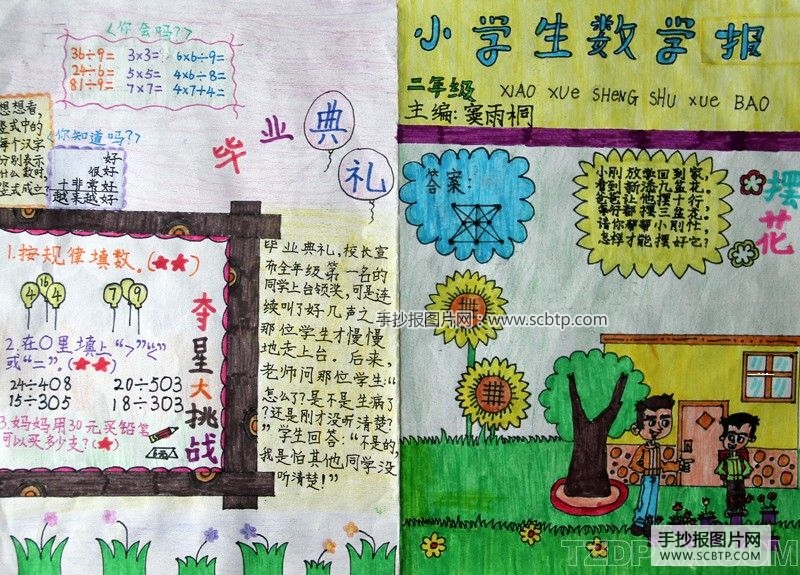 <你会吗?>
36÷9= 3×3= 6×6÷9=
24÷6= 5×5= 4×6÷8=
81÷9= 7×7= 4×7+4=
想想看,
竖式中的
每个汉字
分别表示
什么数时,
竖式成立?
<你知道吗?>
好
很好
+非常好
越来越好
毕业典礼
1.按规律填数。(★★)
4 16 4
7 9
2.在○里填上“>”“<”
或“=”。(★★)
24÷4○8 20÷5○3
15÷3○5 18÷3○3
3.妈妈用30元买铅笔
可以买多少支?(★)
夺星大挑战
毕业典礼,校长宣
布全年级第一名的
同学上台领奖,可是连
续叫了好几声之
那位学生才慢慢
地走上台。后来,
老师问那位学生:“
怎么了?是不是生病了
?还是刚才没听清楚?
”学生回答:“不是的,
我是怕其他同学没
听清楚!”
小学生数学报
二年级 XIAO XUE SHENG SHU XUE BAO
主编:窦雨桐
答案:
小刚放学回到家,
看到新添九盆花。
爸爸让他摆十行,
每行都摆三盆花。
请你帮帮小刚忙,
怎样才能摆好它?
摆花
手抄报图片网:www.scbtp.com
手抄报图片网
WWW.SCBTP.COM